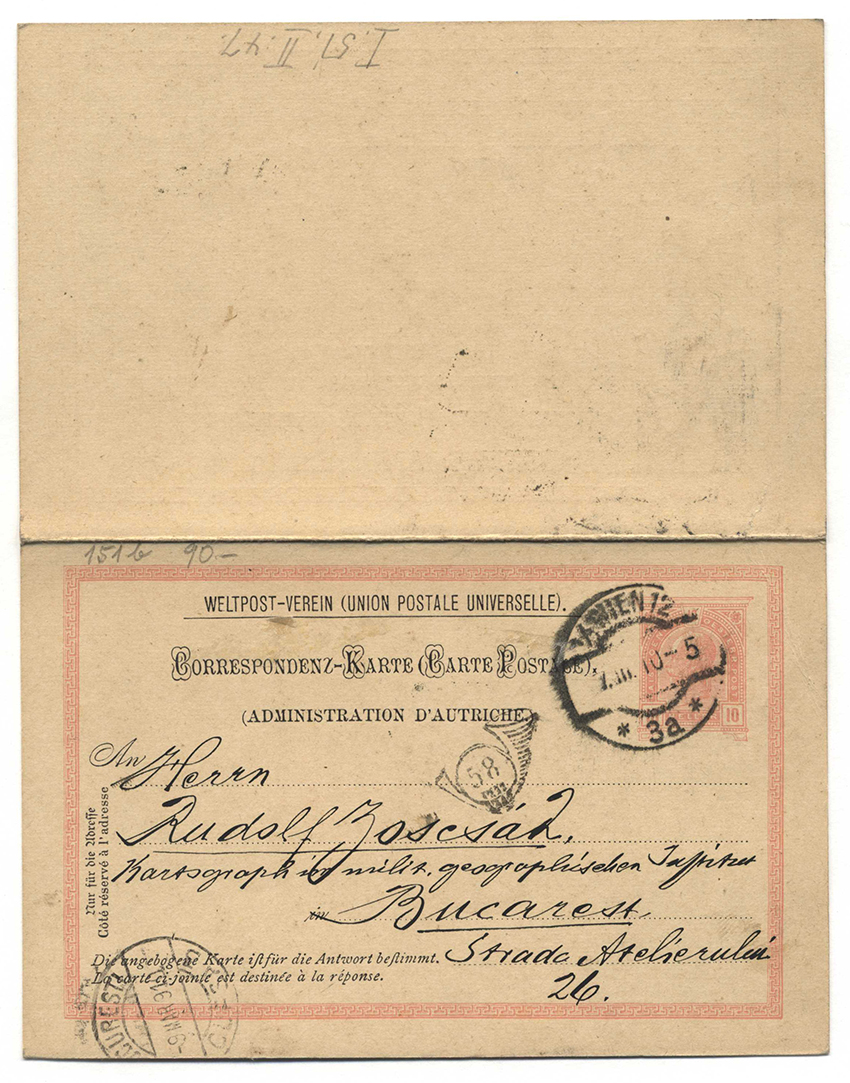 I.51, II.47.
151b 90.—
WELTPOST-VEREIN (UNION POSTALE UNIVERSELLE).
CORRESPONDENZ-KARTE (CARTE POSTALE).
(ADMINISTRATION D'AUTRICHE.)
WIEN 12
10-5
* 3a *
10
58
An Herrn
Rudolf
Kartograph im milit. geographischen Institut
in Bucarest,
Strada Atelierului
26.
Nur für die Adresse
Côté réservé à l'adresse
Die angebogene Karte ist für die Antwort bestimmt.
La carte ci-jointe est destinée à la réponse.